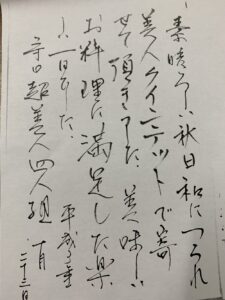 素晴らしい秋日和につられ
美人クインテットで寄
せて頂きました 美味しい
お料理に満足した楽
しい一日でした
平成
守口超美人四人組 一同
二十三日